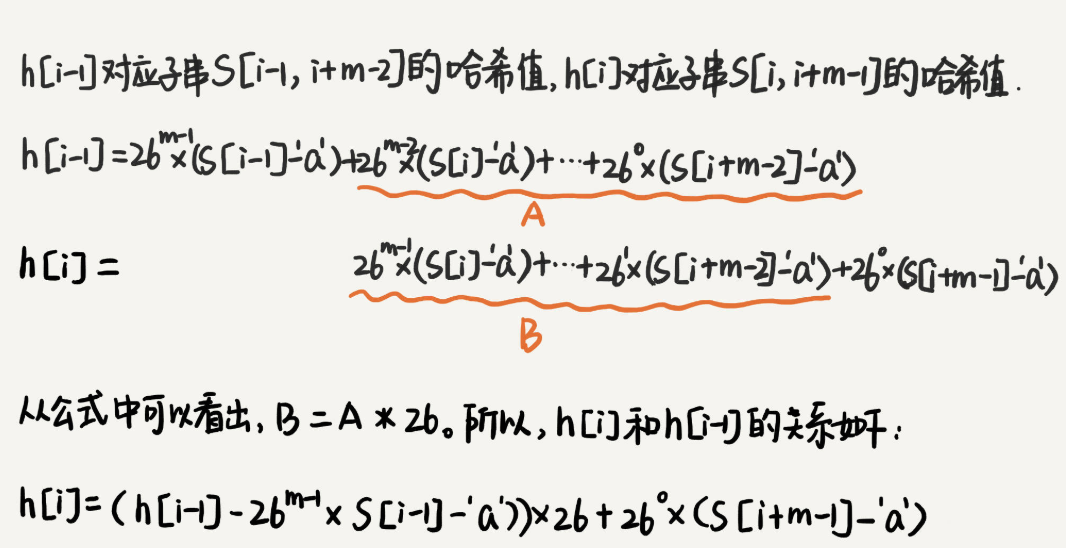 h[i-1]对应子串S[i-1, i+m-2]的哈希值, h[i]对应子串S[i, i+m-1]的哈希值.
h[i-1]=26^{m-1}×(S[i-1]-'a')+26^{m-2}×(S[i]-'a')+…+26^0×(S[i+m-2]-'a')
A
h[i]= 26^{m-1}×(S[i]-'a')+…+26^1×(S[i+m-2]-'a')+26^0×(S[i+m-1]-'a')
B
从公式中可以看出, B=A*26。所以, h[i]和h[i-1]的关系如下:
h[i]=(h[i-1]-26^{m-1}×S[i-1]-'a'))×26+26^0×(S[i+m-1]-'a')